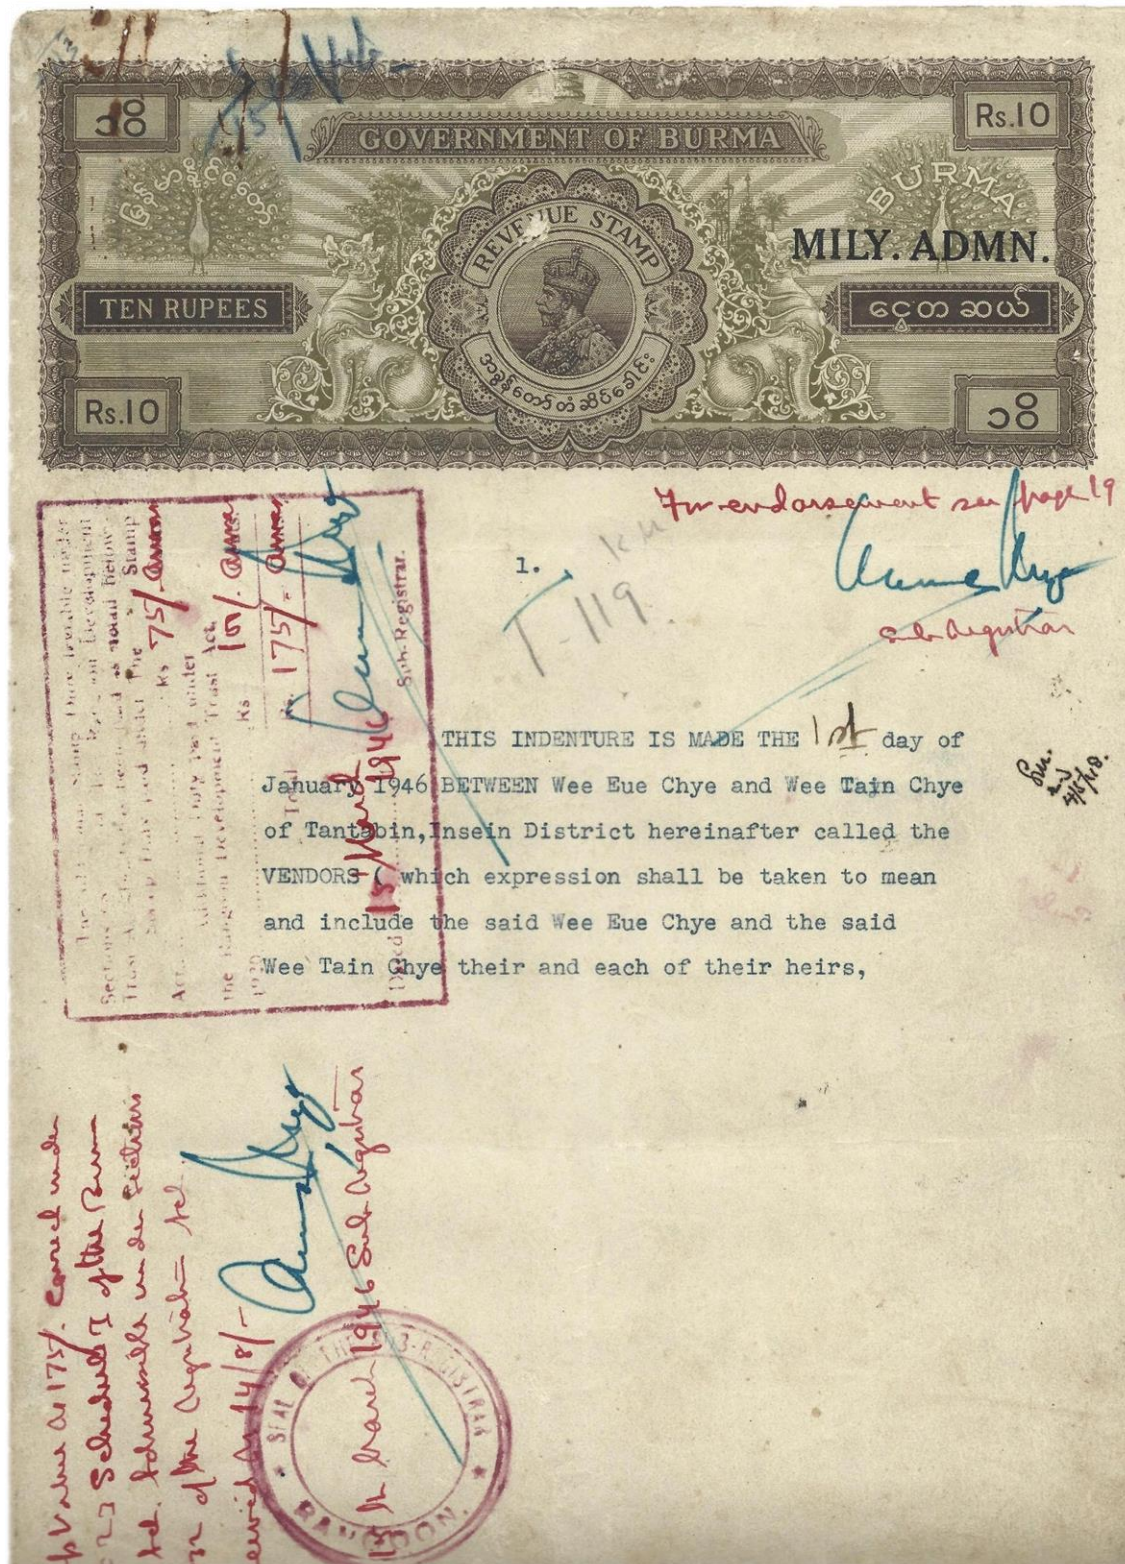 ၁၀ိ
Rs.10
GOVERNMENT OF BURMA
BURMA
REVENUE STAMP
MILY. ADMN.
TEN RUPEES
ငွေတဆယ်
အခွန်တော်တံဆိပ်ခေါင်း
Rs.10
၁၀ိ
For endorsement see page 19
1.
T-119
Sub Registrar
THIS INDENTURE IS MADE THE 1st day of
January 1946 BETWEEN Wee Eue Chye and Wee Tain Chye
of Tantabin,Insein District hereinafter called the
VENDORS ( which expression shall be taken to mean
and include the said Wee Eue Chye and the said
Wee Tain Chye their and each of their heirs,
Stamp Duty leviable under
Development
Trust as noted below
under The Stamp
Rs 75/-
Additional Duty under
the Rangoon Development Trust Act,
Rs 100/-
Total Rs. 175/-
Dated 15 March 1946
Sub-Registrar.
value Rs 175/- Correct under
23 Schedule I of the Burma
Act. Admissible under Sections
32 of the Registration Act
14/8/-
15th March 1946 Sub Registrar
SEAL OF THE SUB-REGISTRAR
RANGOON.